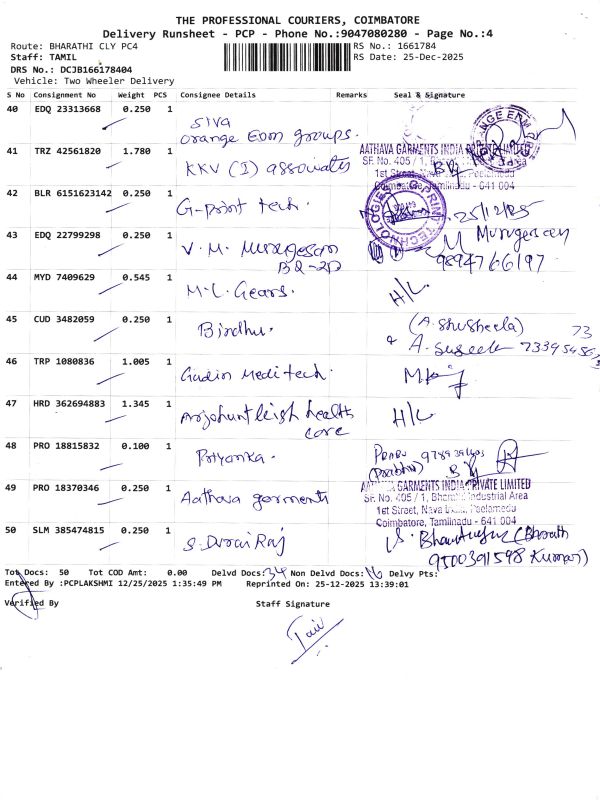 THE PROFESSIONAL COURIERS, COIMBATORE
Delivery Runsheet - PCP - Phone No.:9047080280 - Page No.:4
Route: BHARATHI CLY PC4 RS No.: 1661784
Staff: TAMIL RS Date: 25-Dec-2025
DRS No.: DCJB166178404
Vehicle: Two Wheeler Delivery
S No Consignment No Weight PCS Consignee Details Remarks Seal & Signature
40 EDQ 23313668 0.250 1
Siva
Orange Eom groups.
41 TRZ 42561820 1.780 1 KKV (I) associates
AATHAVA GARMENTS INDIA PRIVATE LIMITED
SF. No. 405 / 1,
1st Street, Nava Peelamedu
Coimbatore, Tamilnadu - 641 004
42 BLR 6151623142 0.250 1 G-print tech. 25/12/25
43 EDQ 22799298 0.250 1 V. M. Murugesan Murugesan
9894766197
44 MYD 7409629 0.545 1 M.L. Gears. H/L
45 CUD 3482059 0.250 1 Birdhu. (A. Shusheela)
46 TRP 1080836 1.005 1 Meditech.
47 HRD 362694883 1.345 1 health H/L
care
48 PRO 18815832 0.100 1 Priyanka.
(Prabhu)
49 PRO 18370346 0.250 1 Aathava garments
AATHAVA GARMENTS INDIA PRIVATE LIMITED
SF. No. 405 / 1, Bharathi Industrial Area
1st Street, Nava India, Peelamedu
Coimbatore, Tamilnadu - 641 004
50 SLM 385474815 0.250 1 S. Durai Raj (Bharath
9500391598 Kumar)
Tot Docs: 50 Tot COD Amt: 0.00 Delvd Docs:34 Non Delvd Docs:16 Delvy Pts:
Entered By :PCPLAKSHMI 12/25/2025 1:35:49 PM Reprinted On: 25-12-2025 13:39:01
Verified By Staff Signature